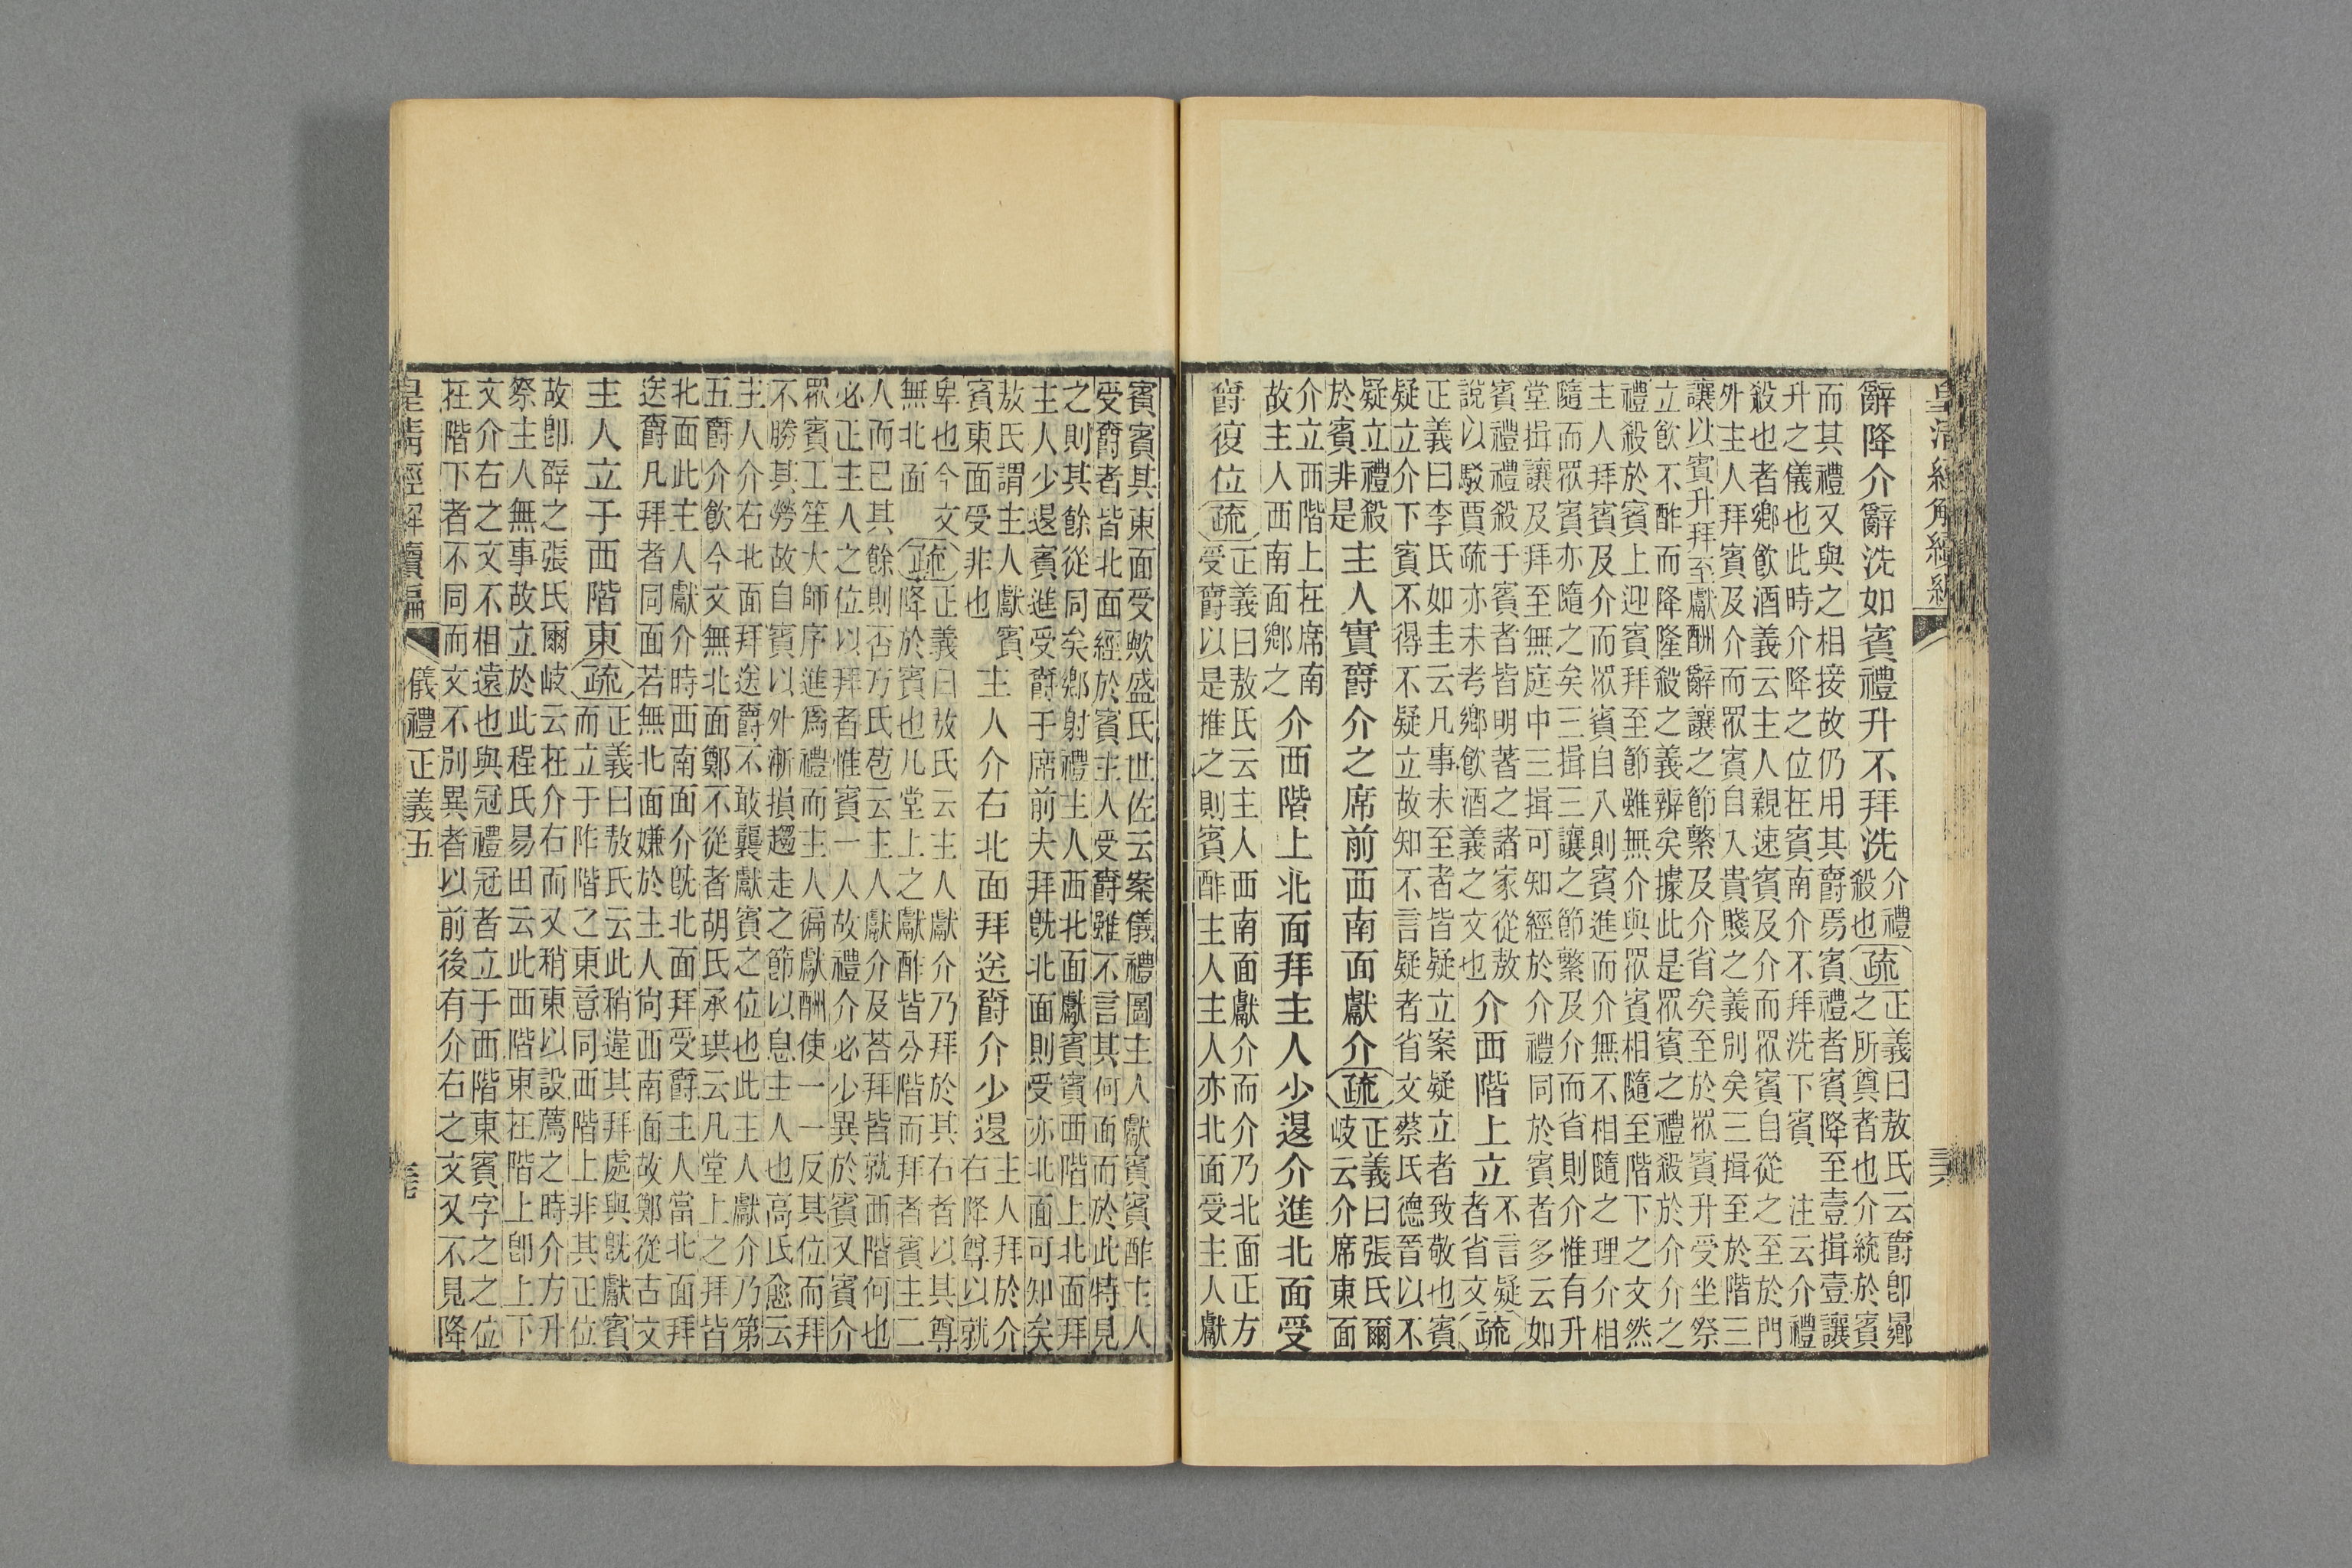 皇清經解續編
辭降介辭洗如賓禮升不拜洗
介禮
殺也
疏
正義曰敖氏云爵卽曏
之所奠者也介統於賓
而其禮又與之相接故仍用其爵焉賓禮者賓降至壹揖壹讓
升之儀也此時介降之位在賓南介不拜洗下賓 注云介禮
殺也者鄉飲酒義云主人親速賓及介而眾賓自從之至於門
外主人拜賓及介而眾賓自入貴賤之義別矣三揖至於階三
讓以賓升拜至獻酬辭讓之節繁及介省矣至於眾賓升受坐祭
立飲不酢而降隆殺之義辨矣據此是眾賓之禮殺於介介之
禮殺於賓上迎賓拜至節雖無介與眾賓相隨至階下之文然
主人拜賓及介而眾賓自入則賓進而介無不相隨之理介相
隨而眾賓亦隨之矣三揖三讓之節繁及介而省則介惟有升
堂揖讓及拜至無庭中三揖可知經於介禮同於賓者多云如
賓禮禮殺于賓者皆明著之諸家從敖
說以駁賈疏亦未考鄉飲酒義之文也
介西階上立
不言疑
者省文
疏
正義曰李氏如圭云凡事未至者皆疑立案疑立者致敬也賓
疑立介下賓不得不疑立故知不言疑者省文蔡氏德晉以不
疑立禮殺
於賓非是
主人實爵介之席前西南面獻介
疏
正義曰張氏爾
岐云介席東面
介立西階上在席南
故主人西南面鄉之
介西階上北面拜主人少退介進北面受
爵復位
疏
正義曰敖氏云主人西南面獻介而介乃北面正方
受爵以是推之則賓酢主人主人亦北面受主人獻
賓賓其東面受歟盛氏世佐云案儀禮圖主人獻賓賓酢主人
受爵者皆北面經於賓主人受爵雖不言其何面而於此特見
之則其餘從同矣鄉射禮主人西北面獻賓賓西階上北面拜
主人少退賓進受爵于席前夫拜旣北面則受亦北面可知矣
敖氏謂主人獻賓
賓東面受非也
主人介右北面拜送爵介少退
主人拜於介
右降尊以就
卑也今文
無北面
疏
正義曰敖氏云主人獻介乃拜於其右者以其尊
降於賓也凡堂上之獻酢皆分階而拜者賓主二
人而已其餘則否方氏苞云主人獻介及荅拜皆就西階何也
必正主人之位以拜者惟賓一人故禮介必少異於賓又賓介
眾賓工笙大師序進爲禮而主人徧獻酬使一一反其位而拜
不勝其勞故自賓以外漸損趨走之節以息主人也高氏愈云
主人介右北面拜送爵不敢襲獻賓之位也此主人獻介乃第
五爵介飲今文無北面鄭不從者胡氏承珙云凡堂上之拜皆
北面此主人獻介時西南面介旣北面拜受爵主人當北面拜
送爵凡拜者同面若無北面嫌於主人尙西南面故鄭從古文
主人立于西階東
疏
正義曰敖氏云此稍違其拜處與旣獻賓
而立于阼階之東意同西階上非其正位
故卽辟之張氏爾岐云在介右而又稍東以設薦之時介方升
祭主人無事故立於此程氏易田云此西階東在階上卽上下
文介右之文不相遠也與冠禮冠者立于西階東賓字之之位
在階下者不同而文不別異者以前後有介右之文又不見降
皇清經解續編 儀禮正義五